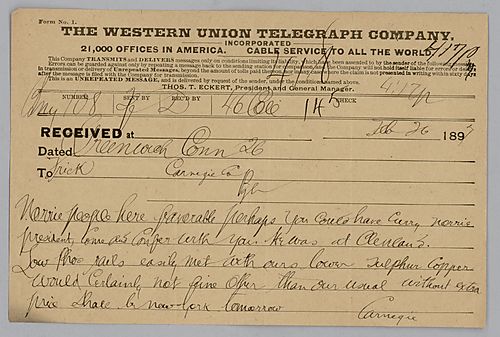 Form No. 1.
THE WESTERN UNION TELEGRAPH COMPANY.
INCORPORATED
21,000 OFFICES IN AMERICA. CABLE SERVICE TO ALL THE WORLD.
This Company TRANSMITS and DELIVERS messages only on conditions limiting its liability, which have been assented to by the sender of the following
Errors can be guarded against only by repeating a message back to the sending station for comparison, and the Company will not hold itself liable for errors or delays
in transmission or delivery of Unrepeated Messages, beyond the amount of tolls paid thereon, nor in any case where the claim is not presented in writing within sixty days
after the message is filed with the Company for transmission.
This is an UNREPEATED MESSAGE, and is delivered by request of the sender, under the conditions named above.
THOS. T. ECKERT, President and General Manager.
NUMBER SENT BY REC'D BY CHECK
108 46
RECEIVED at Feb 26 189
Dated Greenwich Conn 26
To Frick Carnegie Co
Norrie people here favorable perhaps you could have Curry norrie
president come as confer with you He was at
Low Phos rails easily met with ours lower sulphur copper
would certainly not give other than our usual without extra
price Shall be new-york tomorrow
Carnegie